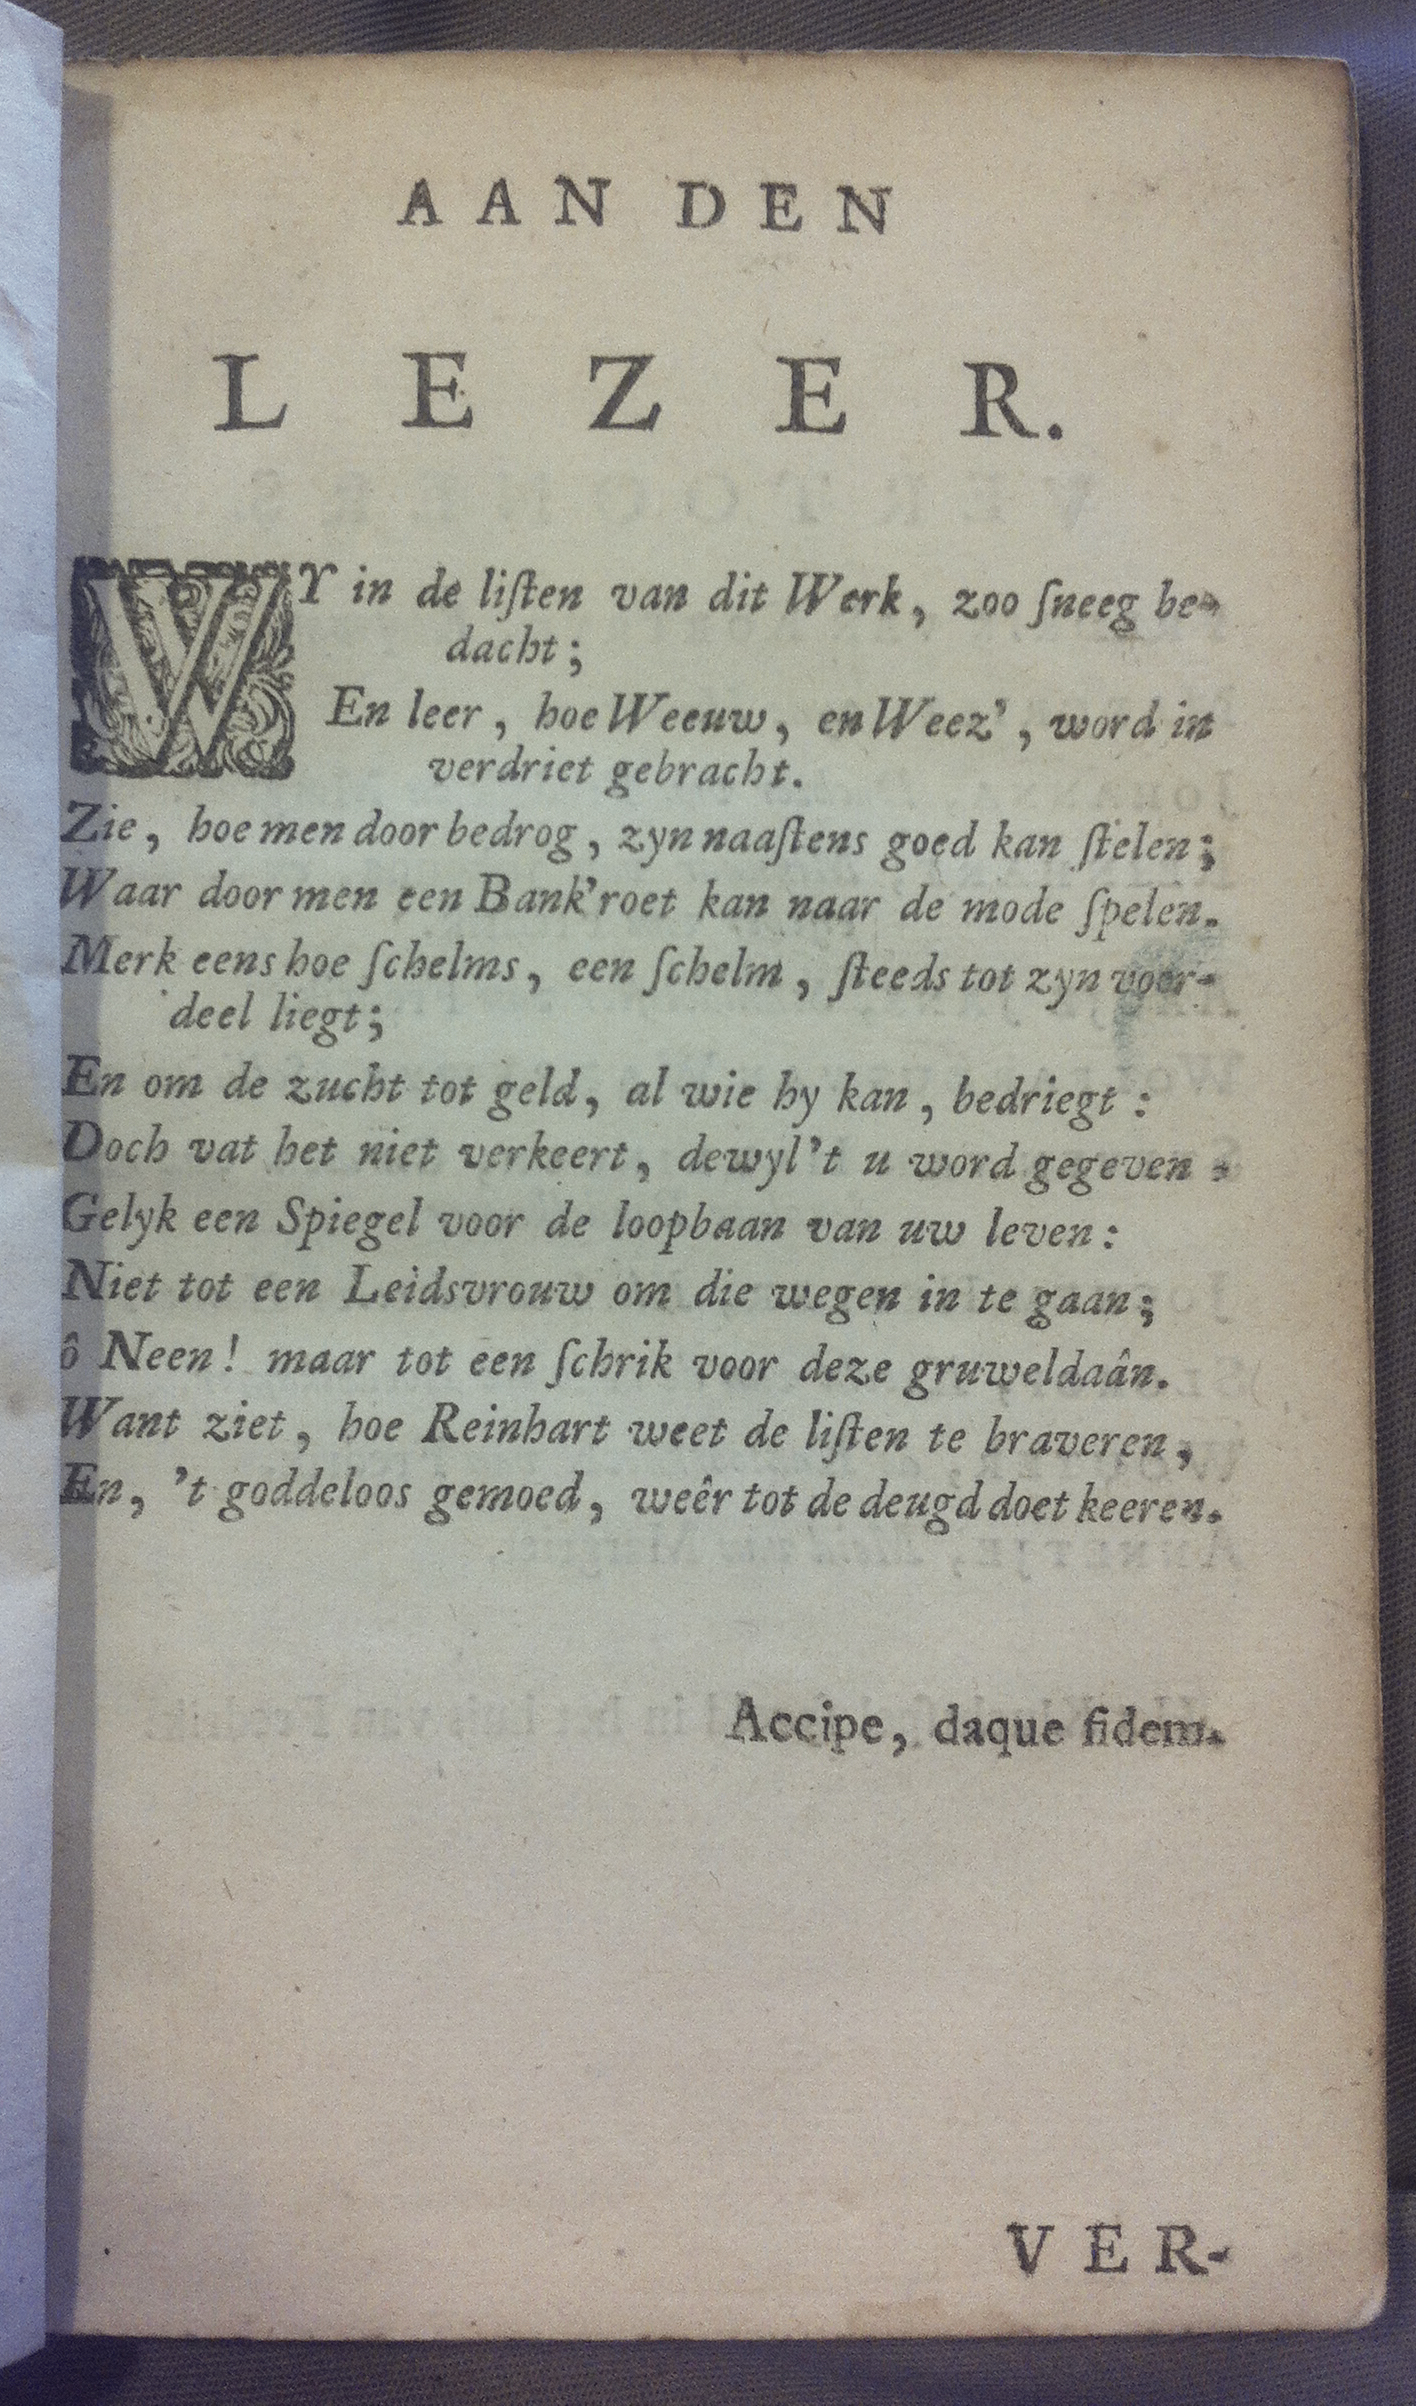 AAN DEN
LEZER.
WY in de liſten van dit Werk, zoo ſneeg be-
dacht;
En leer, hoe Weeuw, en Weez', word in
verdriet gebracht.
Zie, hoe men door bedrog, zyn naaſtens goed kan ſtelen;
Waar door men een Bank'roet kan naar de mode ſpelen.
Merk eens hoe ſchelms, een ſchelm, ſteeds tot zyn voor-
deel liegt;
En om de zucht tot geld, al wie hy kan, bedriegt:
Doch vat het niet verkeert, dewyl 't u word gegeven,
Gelyk een Spiegel voor de loopbaan van uw leven:
Niet tot een Leidsvrouw om die wegen in te gaan;
ô Neen! maar tot een ſchrik voor deze gruweldaân.
Want ziet, hoe Reinhart weet de liſten te braveren,
En, 't goddeloos gemoed, weêr tot de deugd doet keeren.
Accipe, daque fidem.
VER-